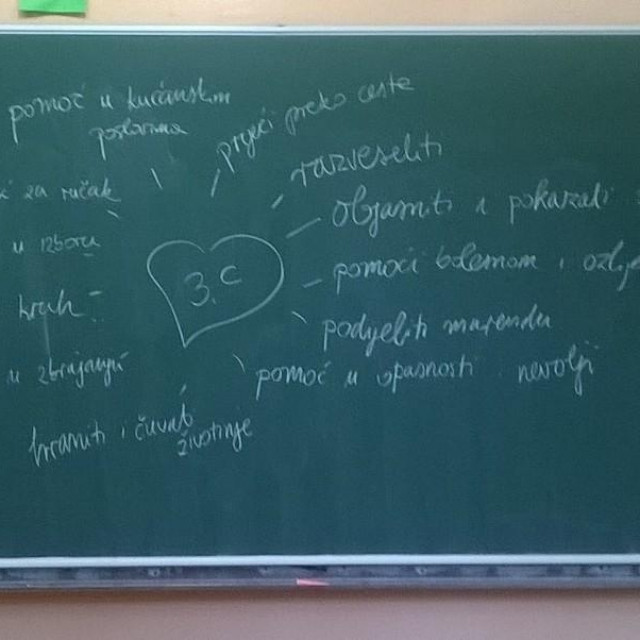 pomoć u kućanskim
poslovima
prijeći preko ceste
razveseliti
za ručak
objasniti i pokazati
u izboru
3.c
pomoći bolesnom i
kruh
podijeliti marendu
u zbrajanju
pomoć u opasnosti i nevolji
hraniti i čuvati
životinje